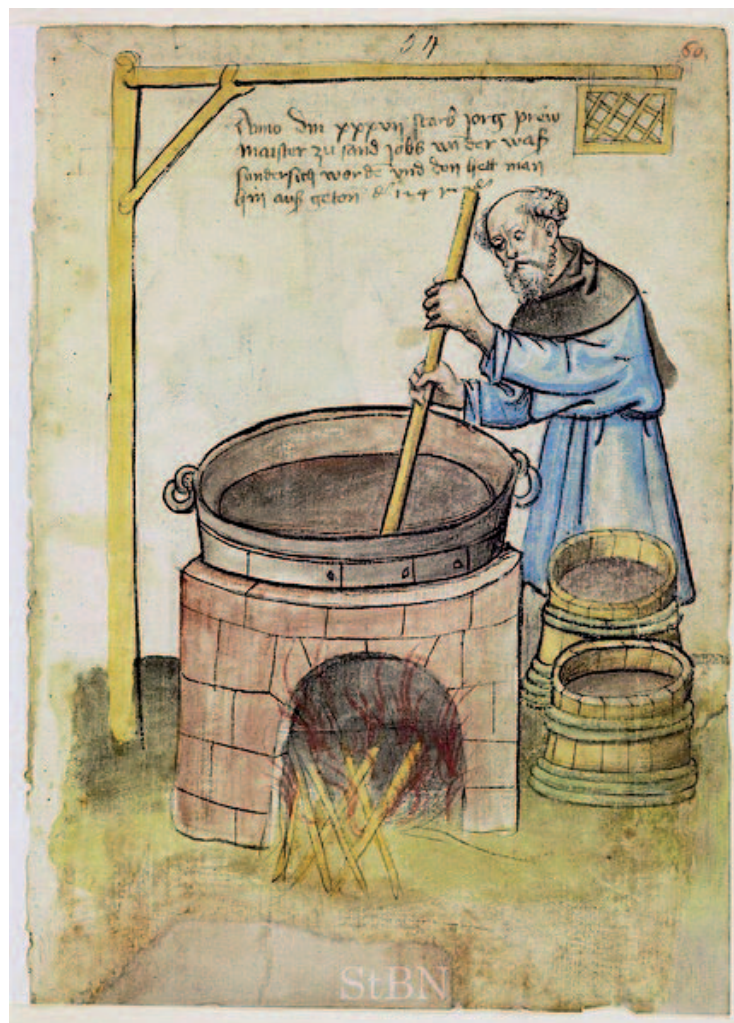 34
60.
Anno dm xxxvii starb jorg prew
maister zu sand jobs un der waß
sundersich worde und den hett man
hin auß geton
StBN